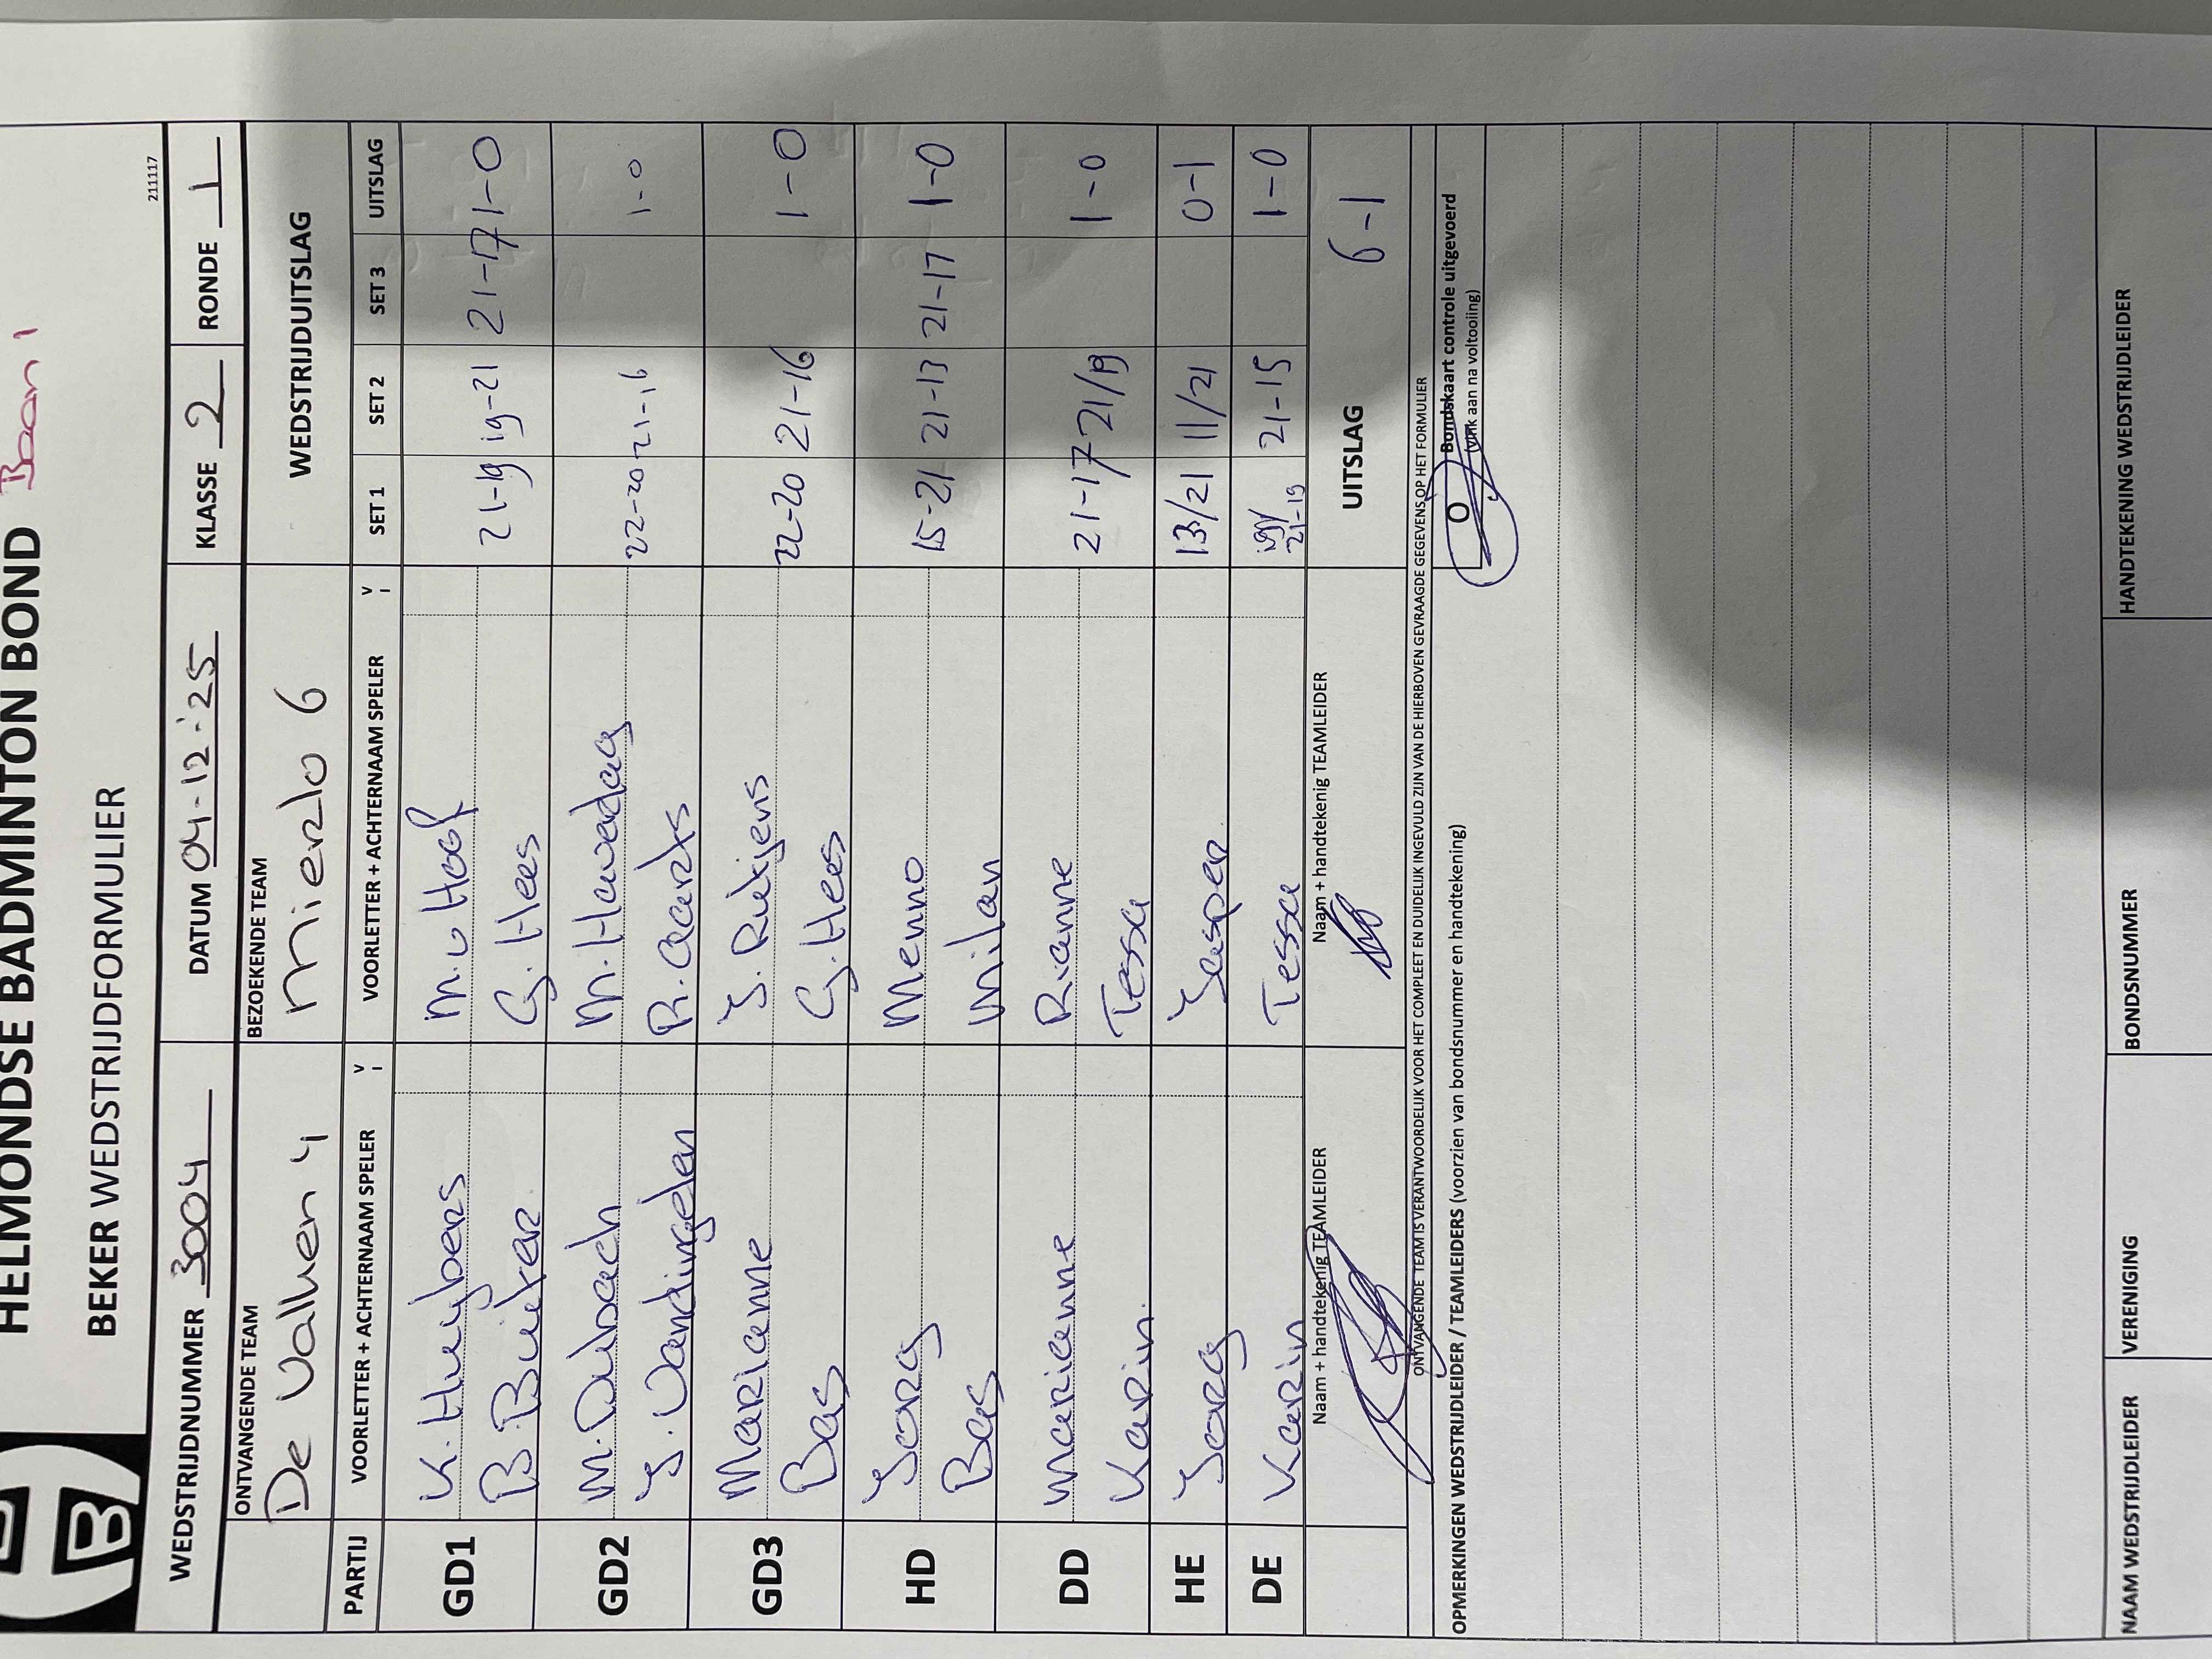 Baan 1
HELMONDSE BADMINTON BOND
BEKER WEDSTRIJDFORMULIER
211117
WEDSTRIJDNUMMER 3004 DATUM 04-12-'25 KLASSE 2 RONDE 1
ONTVANGENDE TEAM BEZOEKENDE TEAM WEDSTRIJDUITSLAG
De Valken 4 Mierlo 6
PARTIJ VOORLETTER + ACHTERNAAM SPELER V I VOORLETTER + ACHTERNAAM SPELER V I SET 1 SET 2 SET 3 UITSLAG
GD1 K. Huijbers M. v Hoof 21-19 19-21 21-17 1-0
B. Buiter G. Hees
GD2 M. Dubach M. Hawedag 22-20 21-16 1-0
J. Vandingelen R. Aarts
GD3 Marianne J. Rutjens 22-20 21-16 1-0
Bas G. Hees
HD Jorg Menno 15-21 21-13 21-17 1-0
Bas Milan
DD Marianne Rianne 21-17 21/19 1-0
Karin. Tessa
HE Jorg Jasper 13/21 11/21 0-1
DE Karin Tessa 21-19 21-15 1-0
Naam + handtekenig TEAMLEIDER Naam + handtekenig TEAMLEIDER UITSLAG 6-1
ONTVANGENDE TEAM IS VERANTWOORDELIJK VOOR HET COMPLEET EN DUIDELIJK INGEVULD ZIJN VAN DE HIERBOVEN GEVRAAGDE GEGEVENS OP HET FORMULIER
OPMERKINGEN WEDSTRIJDLEIDER / TEAMLEIDERS (voorzien van bondsnummer en handtekening) O Bondskaart controle uitgevoerd
(vink aan na voltooling)
NAAM WEDSTRIJDLEIDER VERENIGING BONDSNUMMER HANDTEKENING WEDSTRIJDLEIDER